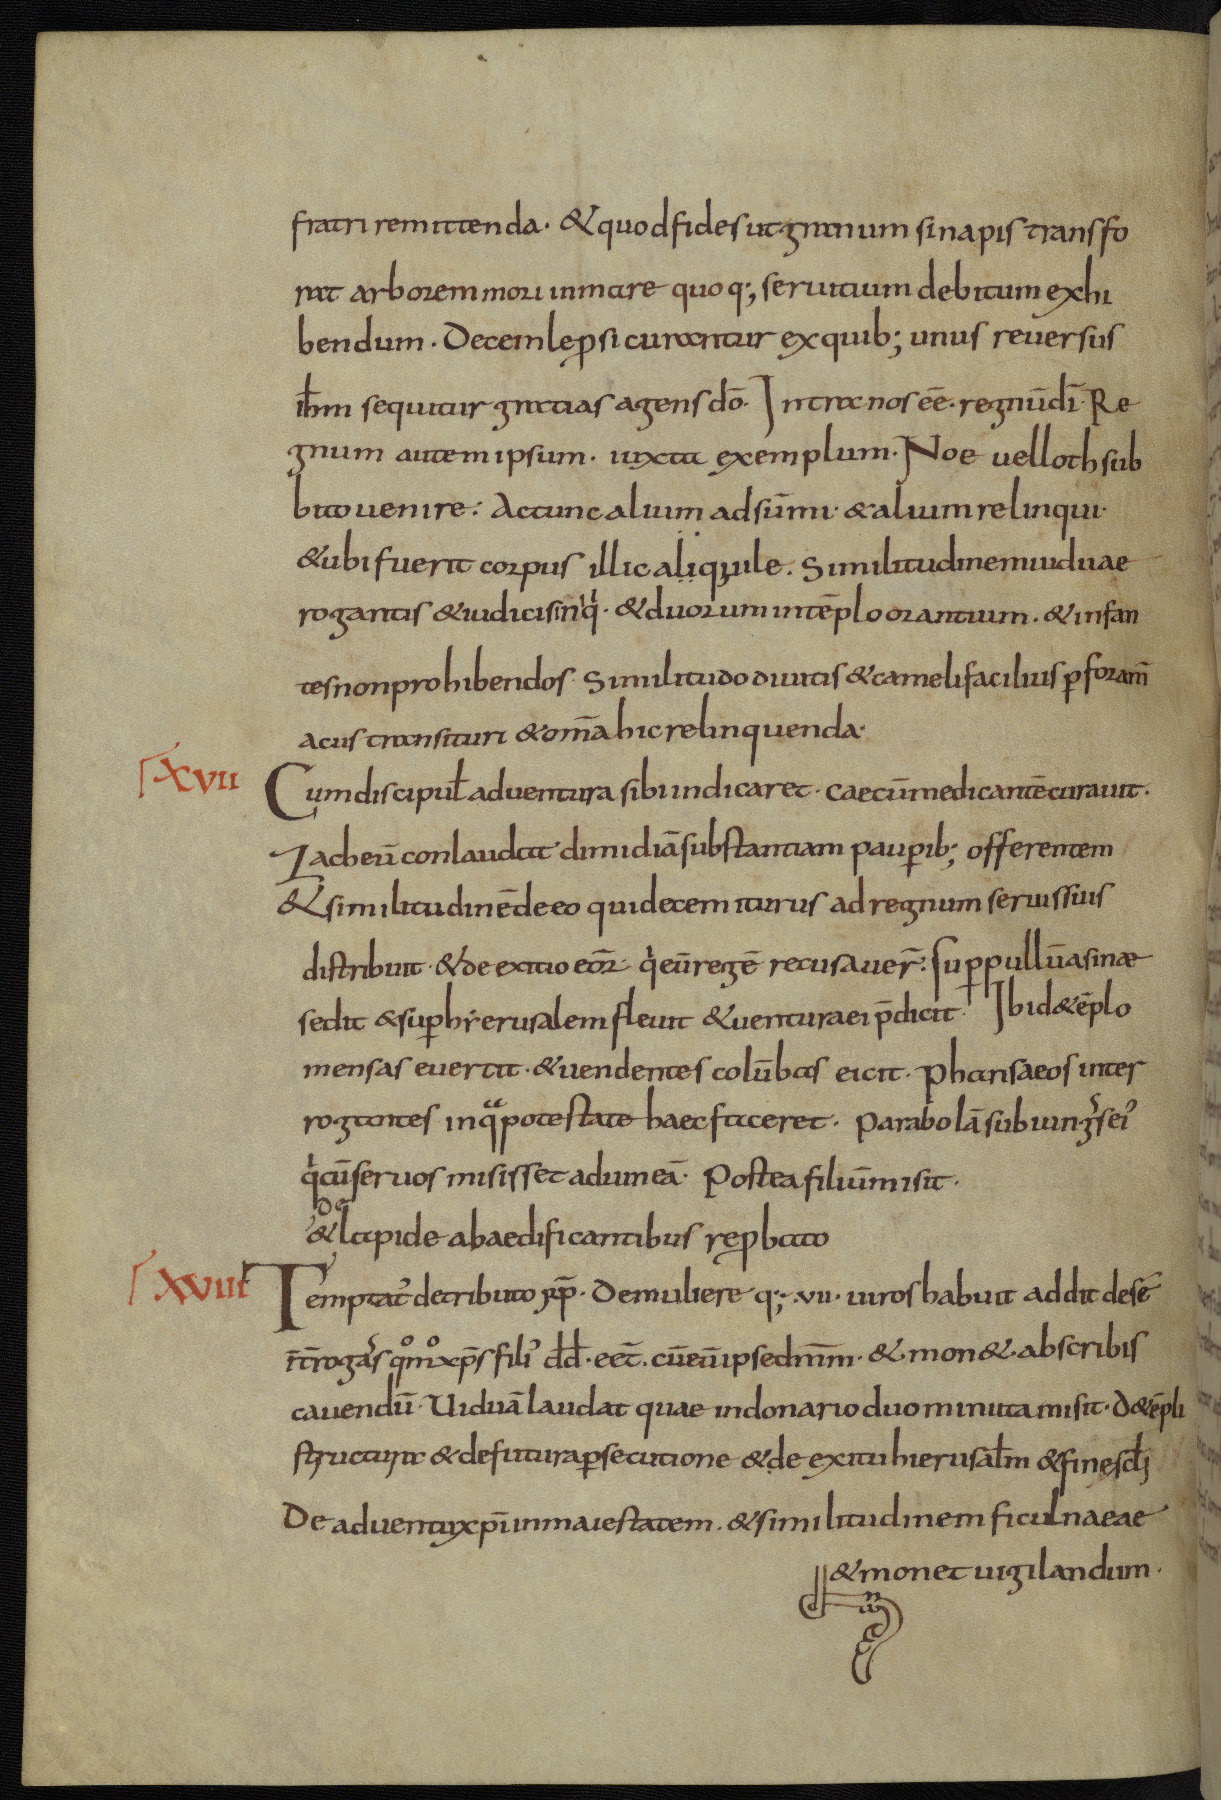 fratri remittenda · & quod fides ut granum sinapis transfo
rat arborem mori in mare quoq·; seruitium debitum exhi
bendum · Decem leprosi curantur ex quib; unus reuersus
ihm sequitur gratias agens dō · Intra nos eē · regnū dī · Re
gnum autem ipsum · iuxta exemplum · Noe uel loth sub
bito uenire : Ac tunc alium adsūmi · & alium relinqui ·
& ubi fuerit corpus illic aliquile . Similitudinem uiduae
rogantis & iudicis iniq · & duorum in tēplo orantium . & infan
tes non prohibendos · Similitudo diuitis & cameli facilius p foram̄
acus transituri & om̄a hic relinquenda ·
XVII Cum discipul adventura sibi indicaret · caecū medicantē curauit .
Zacheū conlaudat · dimidiā substantiam pauperib; offerentem
& similitudinē de eo qui decem iturus ad regnum seruis suis
distribuit · & de exitio eor · qi eū regē recusauer̄ : Sup pullū asinae
sedit & sup hierusalem fleuit & uentura ei p̄dicit · Ibid & ēplo
mensas euertit · & uendentes colūbas eicit · Pharisaeos inter
rogantes in qua potestate haec faceret · Parabolā subiungs ei
qi cū seruos misisset ad uineā · Postea filiū misit ·
& de lapide ab aedificantibus repbato
XVIII Temptat de tributo · De muliere q·; · VII · uiros habuit addit de sē
int̄rogas quomodo xp̄s fili dd · eēt . cū eū ipse dnm̄ · & mon& a bscribis
cauendū · Uiduā laudat quae in donario duo minuta misit · D& ēpli
structura & de futura psecutione & de exitu hierusalm & fine scli
De aduentu xp̄i in maiestatem . & similitudinem ficulnaeae
& monet uigilandum ·